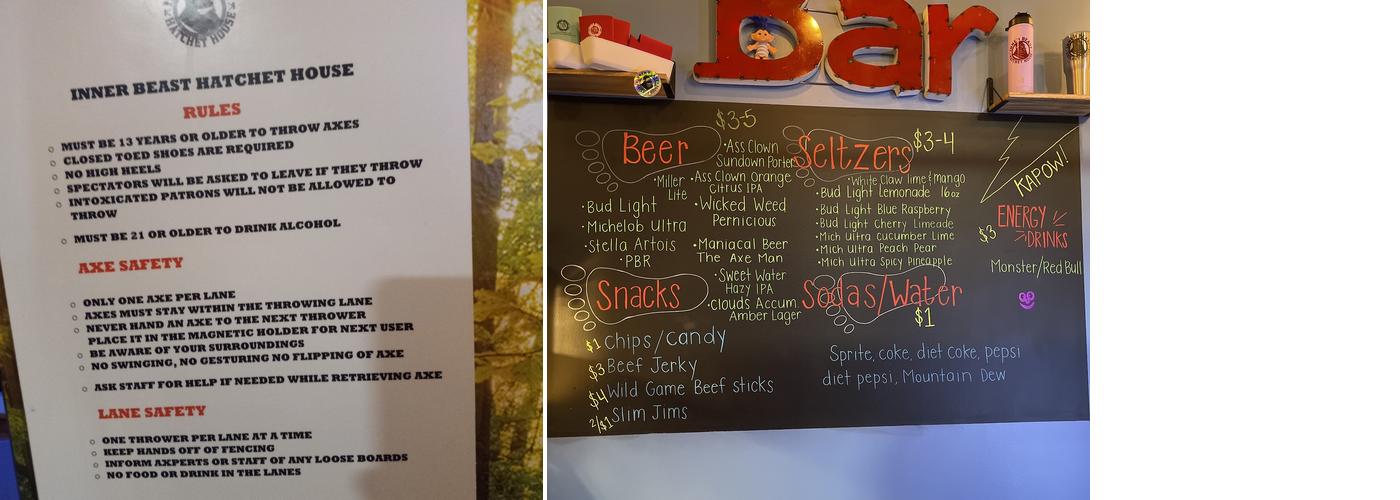 HATCHET HOUSE
INNER BEAST HATCHET HOUSE
RULES
MUST BE 13 YEARS OR OLDER TO THROW AXES
CLOSED TOED SHOES ARE REQUIRED
NO HIGH HEELS
SPECTATORS WILL BE ASKED TO LEAVE IF THEY THROW
INTOXICATED PATRONS WILL NOT BE ALLOWED TO
THROW
MUST BE 21 OR OLDER TO DRINK ALCOHOL
AXE SAFETY
ONLY ONE AXE PER LANE
AXES MUST STAY WITHIN THE THROWING LANE
NEVER HAND AN AXE TO THE NEXT THROWER
PLACE IT IN THE MAGNETIC HOLDER FOR NEXT USER
BE AWARE OF YOUR SURROUNDINGS
NO SWINGING, NO GESTURING NO FLIPPING OF AXE
ASK STAFF FOR HELP IF NEEDED WHILE RETRIEVING AXE
LANE SAFETY
ONE THROWER PER LANE AT A TIME
KEEP HANDS OFF OF FENCING
INFORM AXPERTS OR STAFF OF ANY LOOSE BOARDS
NO FOOD OR DRINK IN THE LANES
Bar
Beer
$3-5
•Miller
Lite
•Bud Light
•Michelob Ultra
•Stella Artois
•PBR
•Ass Clown
Sundown Porter
•Ass Clown Orange
Citrus IPA
•Wicked Weed
Pernicious
•Maniacal Beer
The Axe Man
•Sweet Water
Hazy IPA
•Clouds Accum.
Amber Lager
Seltzers
$3-4
•White Claw lime & mango
•Bud Light Lemonade 16oz
•Bud Light Blue Raspberry
•Bud Light Cherry Limeade
•Mich Ultra Cucumber Lime
•Mich Ultra Peach Pear
•Mich Ultra Spicy Pineapple
KAPOW!
ENERGY
DRINKS
$3
Monster/Red Bull
Snacks
$1 Chips/Candy
$3 Beef Jerky
$4 Wild Game Beef sticks
2/$1 Slim Jims
Sodas/Water
$1
Sprite, coke, diet coke, pepsi
diet pepsi, Mountain Dew